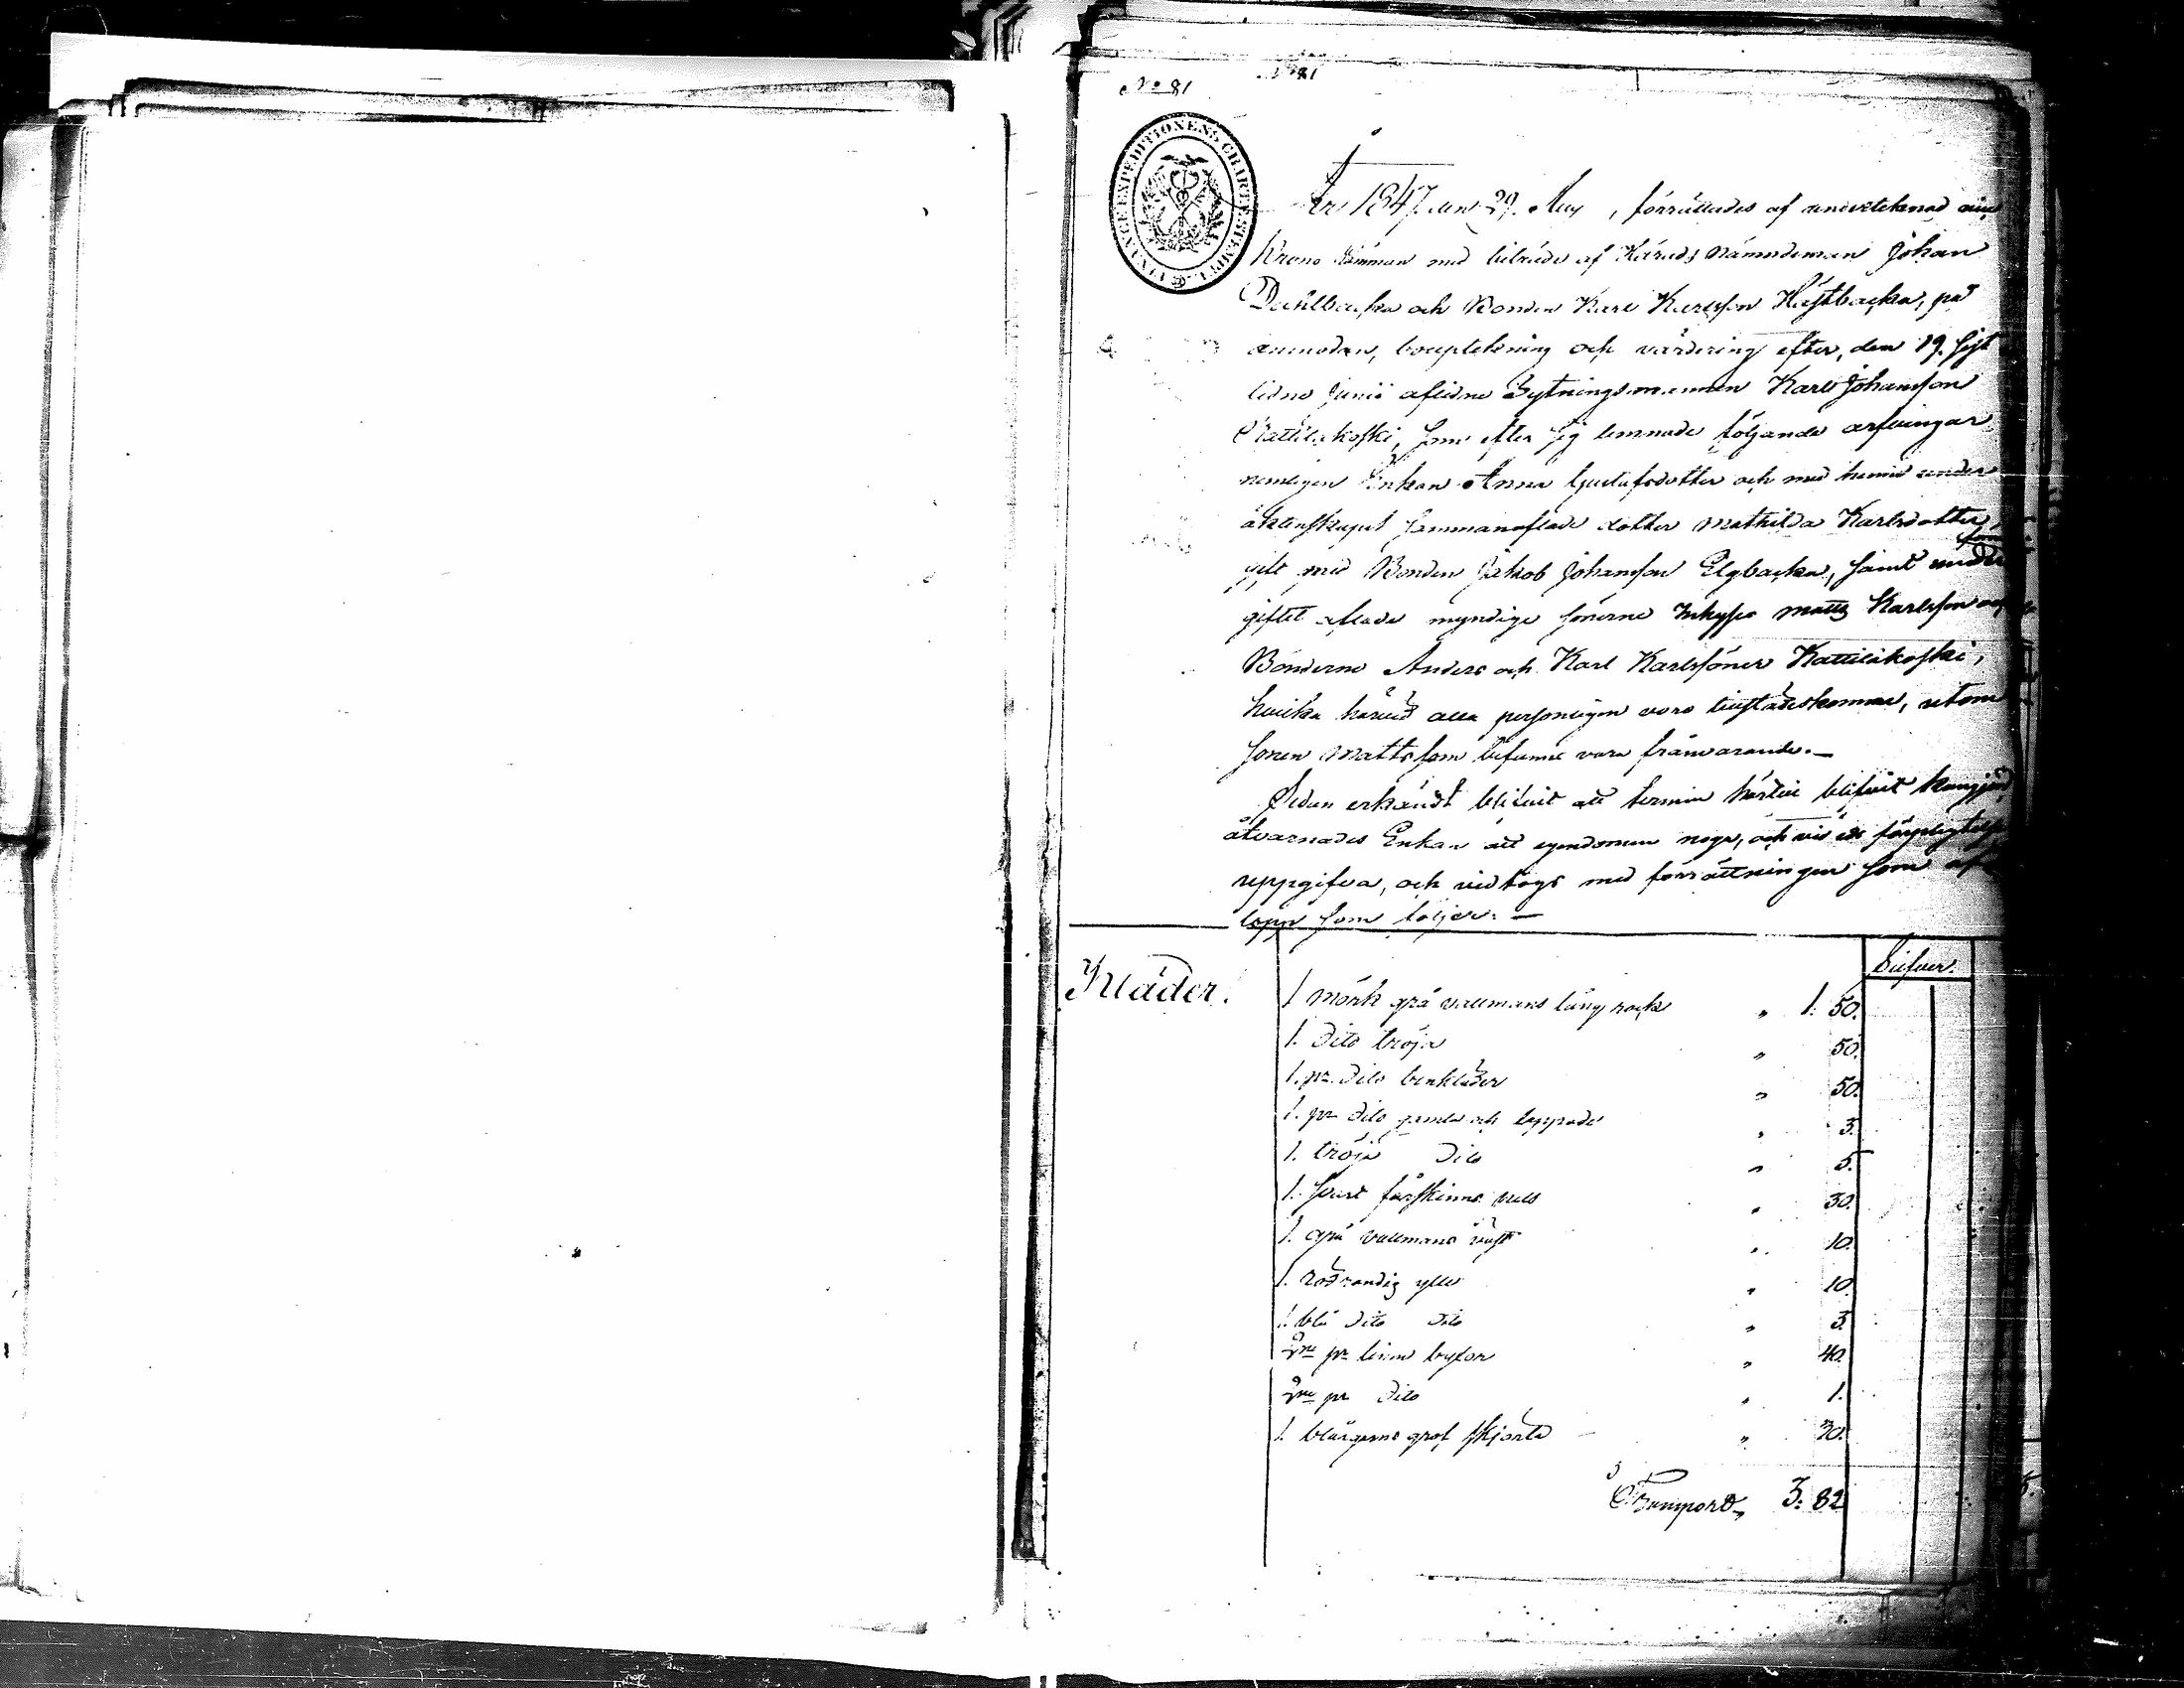 No 81
No 81
FINANCE EXPEDITIONENS CHARTÆ STEMPEL
År 1847 den 29. Aug, förrättades af undertecknad
Krono länsman med biträde af Härads Nämndeman Johan
Dahlbacka och Bonden Karl Karlsson Hästbacka, på
anmodan, bouptekning och värdering efter, den 19. sist
lidne Junii aflidne Sytningsmannen Karl Johansson
Kattilakoski, som efter sig lemnade följande arfvingar
nemligen Enkan Anna Gustafsdotter och med henne under
äktenskapet sammanaflade dotter Mathilda Karlsdotter,
gift med Bonden Jakob Johansson Elgbacka, samt
giftet aflade myndige sönerne Inhyses Matts Karlsson
Bönderne Anders och Karl Karlssöner Kattilakoski,
hvilka härvid alla personligen voro tillstädeskomne, utom
sonen Matts som befunne vara frånvarande.
Sedan erkändt blifvit att termin härtill blifvit kungjord
åtvarnades Enkan att egendomen noga, och vid
uppgifva, och vidtogs med förrättningen som af
lopp som följer.
Silfver.
Kläder.
1 mörk grå vallmans lång rock " 1. 50.
1. dito tröja " 50.
1. pr. dito benkläder " 50.
1. pr dito gamla och lappade " 3.
1. tröja dito " 5.
1. svart fårskinns " 30.
1. grå vallmans väst " 10.
1. rödrandig ylle " 10.
1. blå dito dito " 3.
2ne pr linne byxor " 40.
2ne pr dito " 1.
1. blårgarns grof skjorta " 30.
Transport, 3. 82